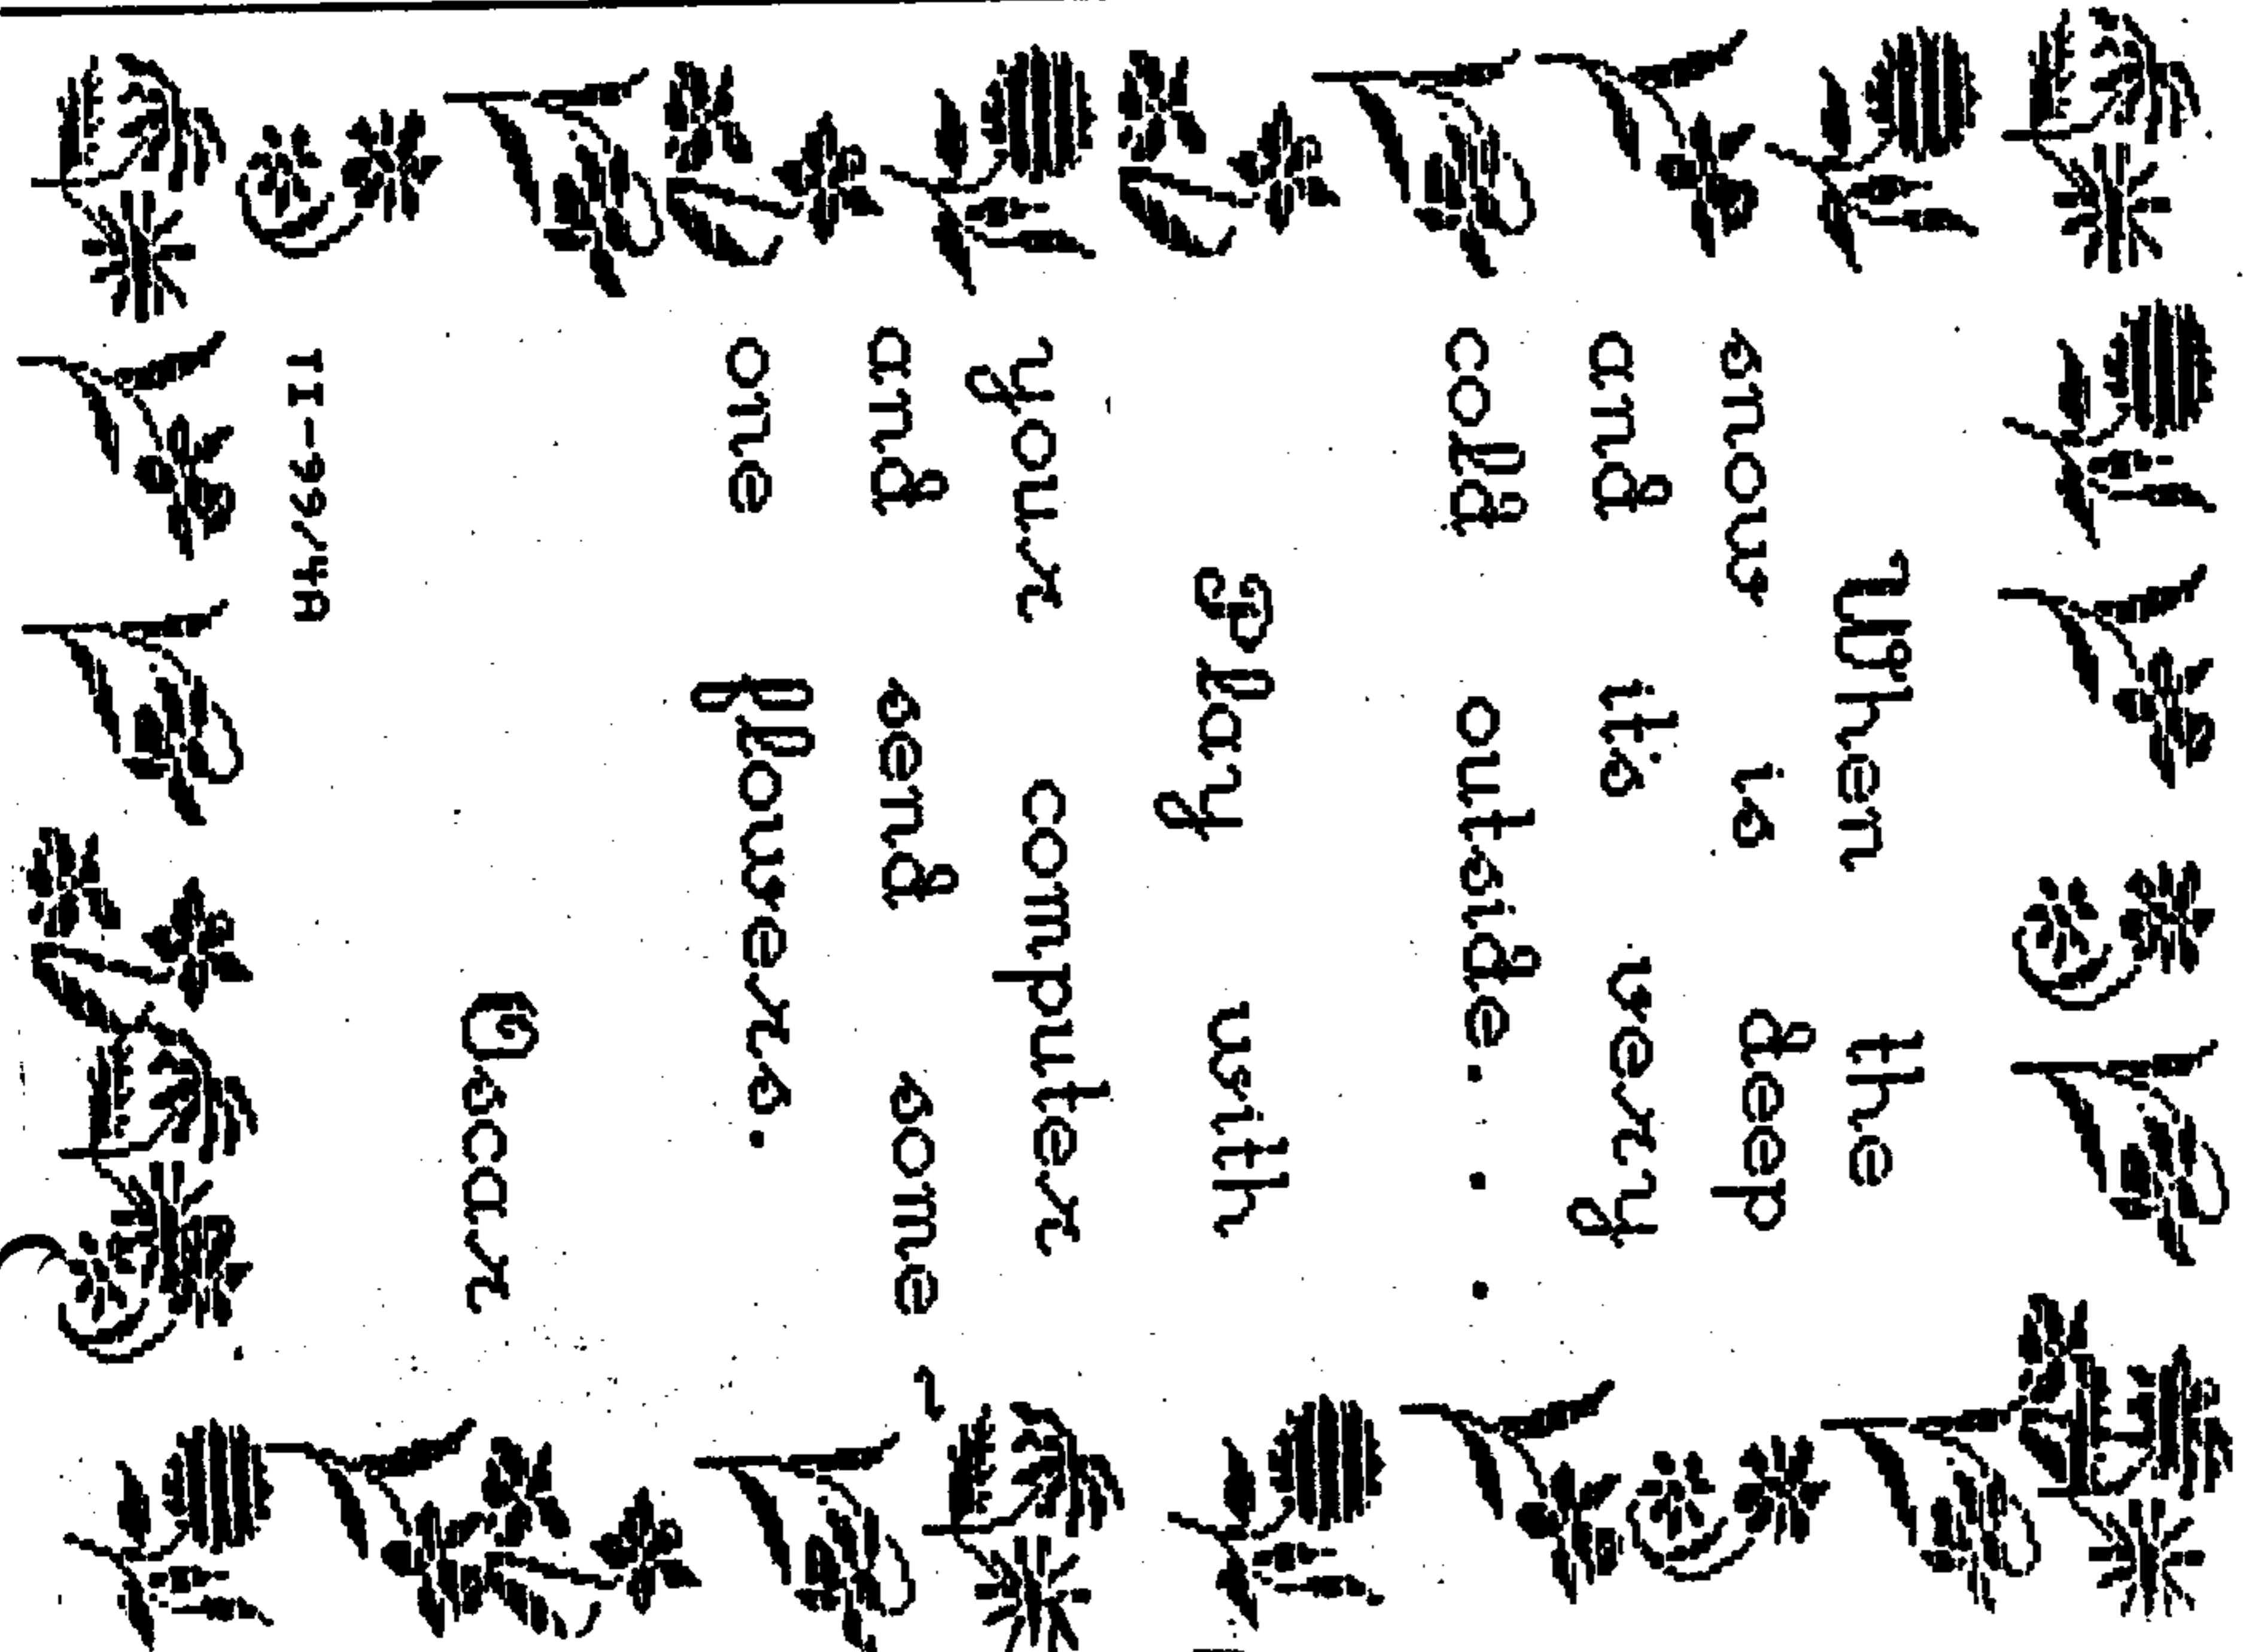 When the
snow is deep
and its very
cold outside...
Play with
your computer
and send some
one flowers.
Oscar
TI-99/4A